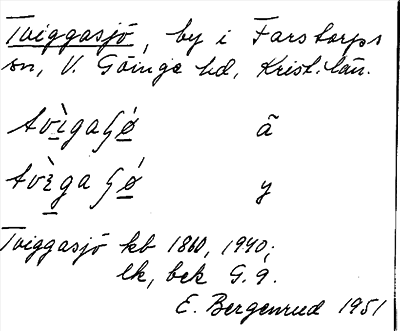 Tviggasjö, by i Farstorps
sn, V. Göinge hd, Krist. län.
tvìgaʃǿ ã
tvìga ʃǿ y
Tviggasjö kb 1860, 1940;
lk, bek G. g.
E. Bergenrud 1951